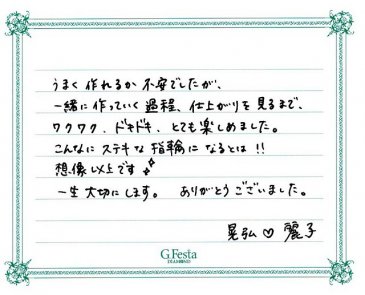 うまく作れるか不安でしたが、
一緒に作っていく過程、仕上がりを見るまで、
ワクワク、ドキドキ、とても楽しめました。
こんなにステキな指輪になるとは!!
想像以上です
一生大切にします。 ありがとうございました。
晃弘♡麗子
G.Festa
DIAMOND